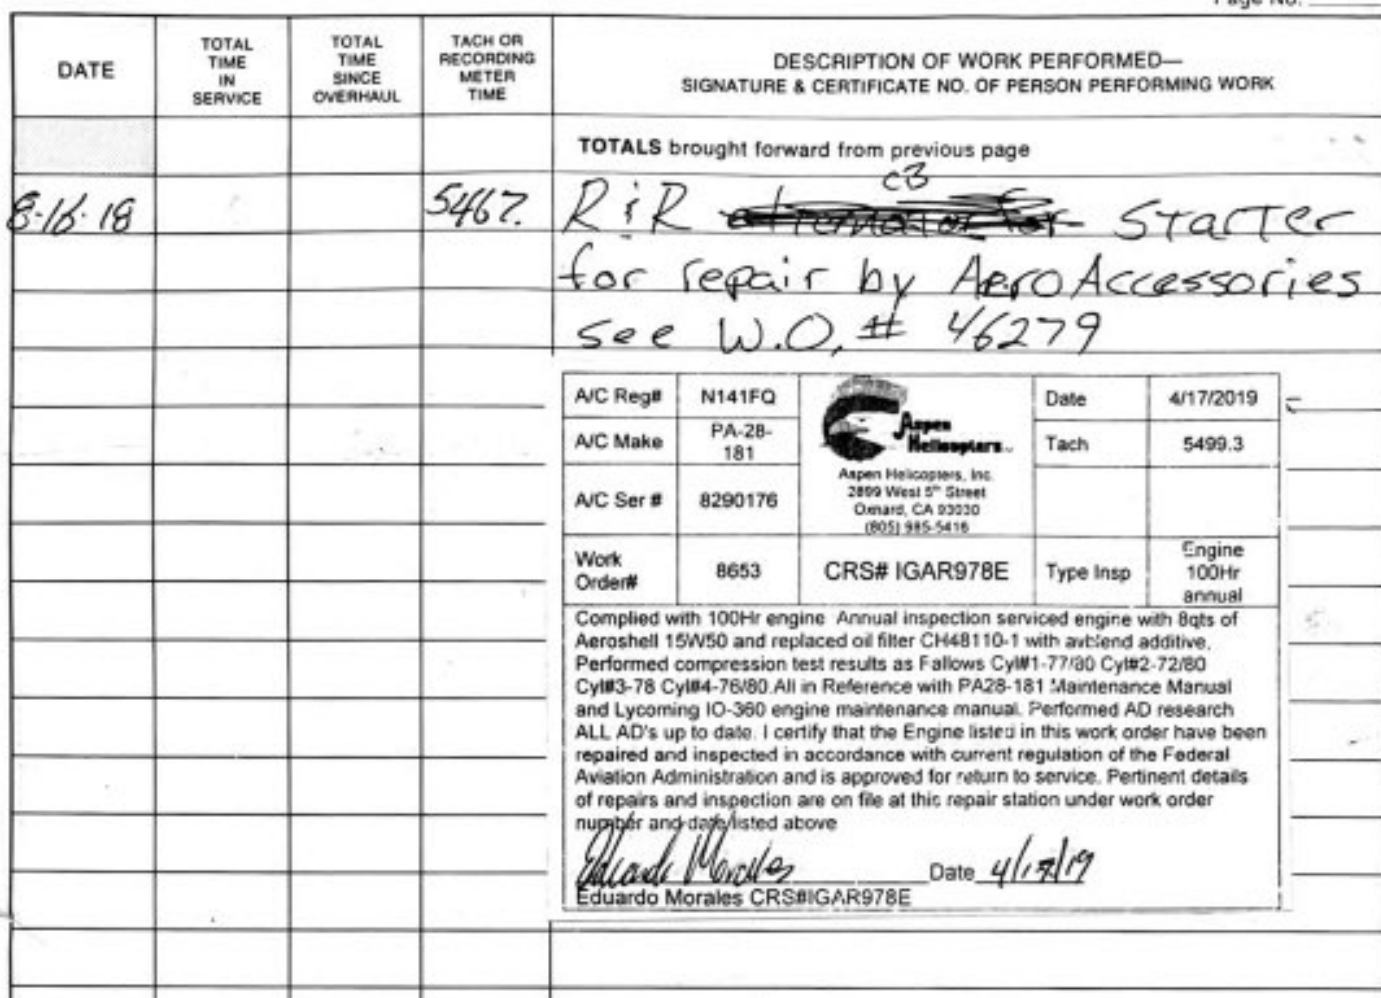 Page No.
DATE
TOTAL
TIME
IN
SERVICE
TOTAL
TIME
SINCE
OVERHAUL
TACH OR
RECORDING
METER
TIME
DESCRIPTION OF WORK PERFORMED—
SIGNATURE & CERTIFICATE NO. OF PERSON PERFORMING WORK
TOTALS brought forward from previous page
8-16-18 5467. R & R Starter
for repair by Aero Accessories
see W.O. # 46279
A/C Reg# N141FQ
A/C Make PA-28-
181
A/C Ser # 8290176
Aspen
Helicopters
Aspen Helicopters, Inc.
2899 West 5th Street
Oxnard, CA 93030
(805) 985-5416
Date 4/17/2019
Tach 5499.3
Work
Order# 8653
CRS# IGAR978E
Type Insp
Engine
100Hr
annual
Complied with 100Hr engine Annual inspection serviced engine with 8qts of
Aeroshell 15W50 and replaced oil filter CH48110-1 with avblend additive.
Performed compression test results as Fallows Cyl#1-77/80 Cyl#2-72/80
Cyl#3-78 Cyl#4-76/80.All in Reference with PA28-181 Maintenance Manual
and Lycoming IO-360 engine maintenance manual. Performed AD research
ALL AD's up to date. I certify that the Engine listed in this work order have been
repaired and inspected in accordance with current regulation of the Federal
Aviation Administration and is approved for return to service. Pertinent details
of repairs and inspection are on file at this repair station under work order
number and date listed above
Eduardo Morales Date 4/17/19
Eduardo Morales CRS#IGAR978E